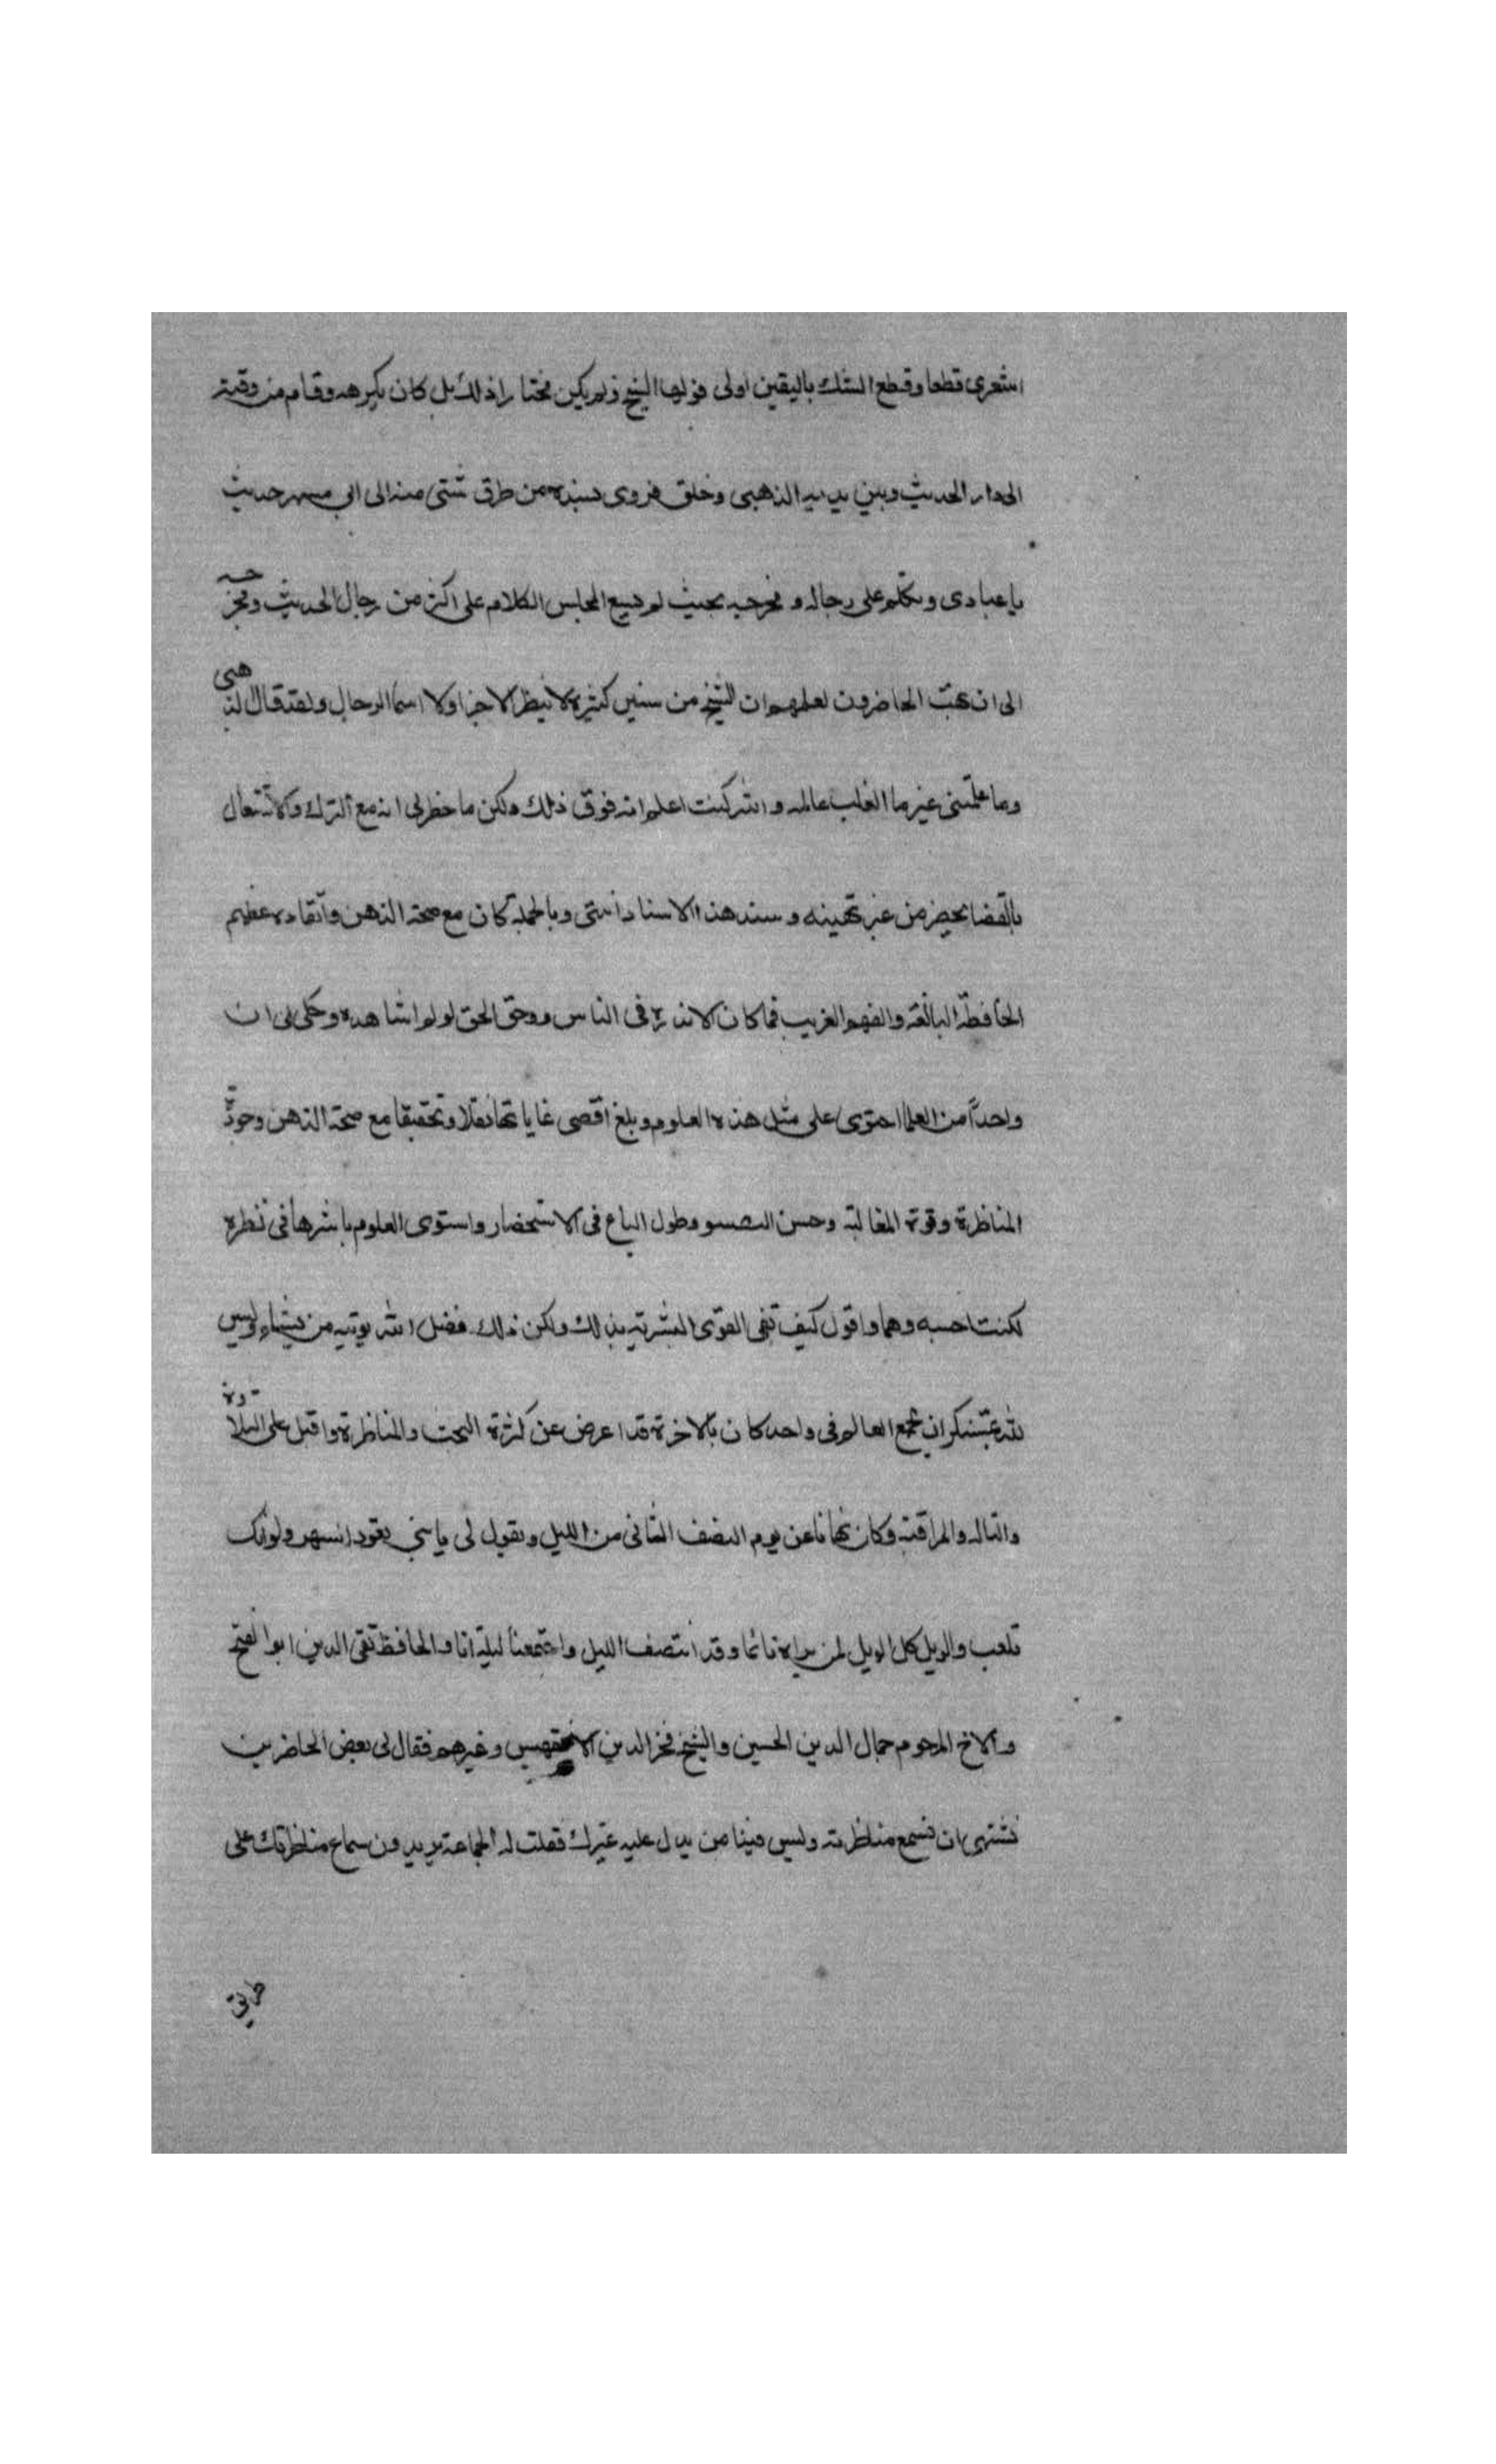 اشعرى قطعا وقطع الشك باليقين اولى فوليها الشيخ ولم يكن مختارا ذلك بل كان يكرهه وقام من وقته
الى دار الحديث وبين يديه الذهبى وخلق فروى بسنده من طرق شتى منه الى ابى مسهر حديث
يا عبادى وتكلم على رجاله ومخرجيه بحيث لم يسع المجلس الكلام على اكثر من رجال الحديث ومخرجيه
الى ان عجب الحاضرون لعلمهم ان الشيخ من سنين كثيرة لا ينظر الاجزا ولا اسما الرجال ولقد قال الذهبى
وما علمتنى غير ما القلب عالمه والله كنت اعلم انه فوق ذلك ولكن ما خطر لى انه مع الترك والاشتغال
بالقضا يحضر من غير تهيئه وسند هذا الاسناد شتى وبالجملة كان مع صحة الذهن واتقاده عظيم
الحافظة البالغة والفهم الغريب فما كان الا ندرة فى الناس ووحق الحق لو لم اشاهده وحكى لى ان
واحداً من العلما احتوى على مثل هذه العلوم وبلغ اقصى غاياتها نقلا وتحقيقا مع صحة الذهن وجودة
المناظرة وقوة المغالبة وحسن وطول الباع فى الاستحضار واستوى العلوم باسرها فى نظره
لكنت احسبه وهما واقول كيف تفى القوى البشرية بذلك ولكن ذلك فضل الله يوتيه من يشاء وليس
لله بمستنكر ان يجمع العالم فى واحد كان بالاخرة قد اعرض عن كثرة البحث والمناظرة واقبل على التلاوة
والتاله والمراقبة وكان ينهانا عن يوم النصف الثانى من الليل ويقول لى يا بنى تعود السهر ولو انك
تلعب والويل كل الويل لمن يراه نائما وقد انتصف الليل واجتمعنا ليلة انا والحافظ تقى الدين ابو الفتح
والاخ المرحوم جمال الدين الحسين والشيخ فخر الدين الاقفهسى وغيرهم فقال لى بعض الحاضرين
نشتهى ان نسمع مناظرته وليس فينا من يدل عليه غيرك فقلت له الجماعة يريدون سماع مناظرتك على
طريق